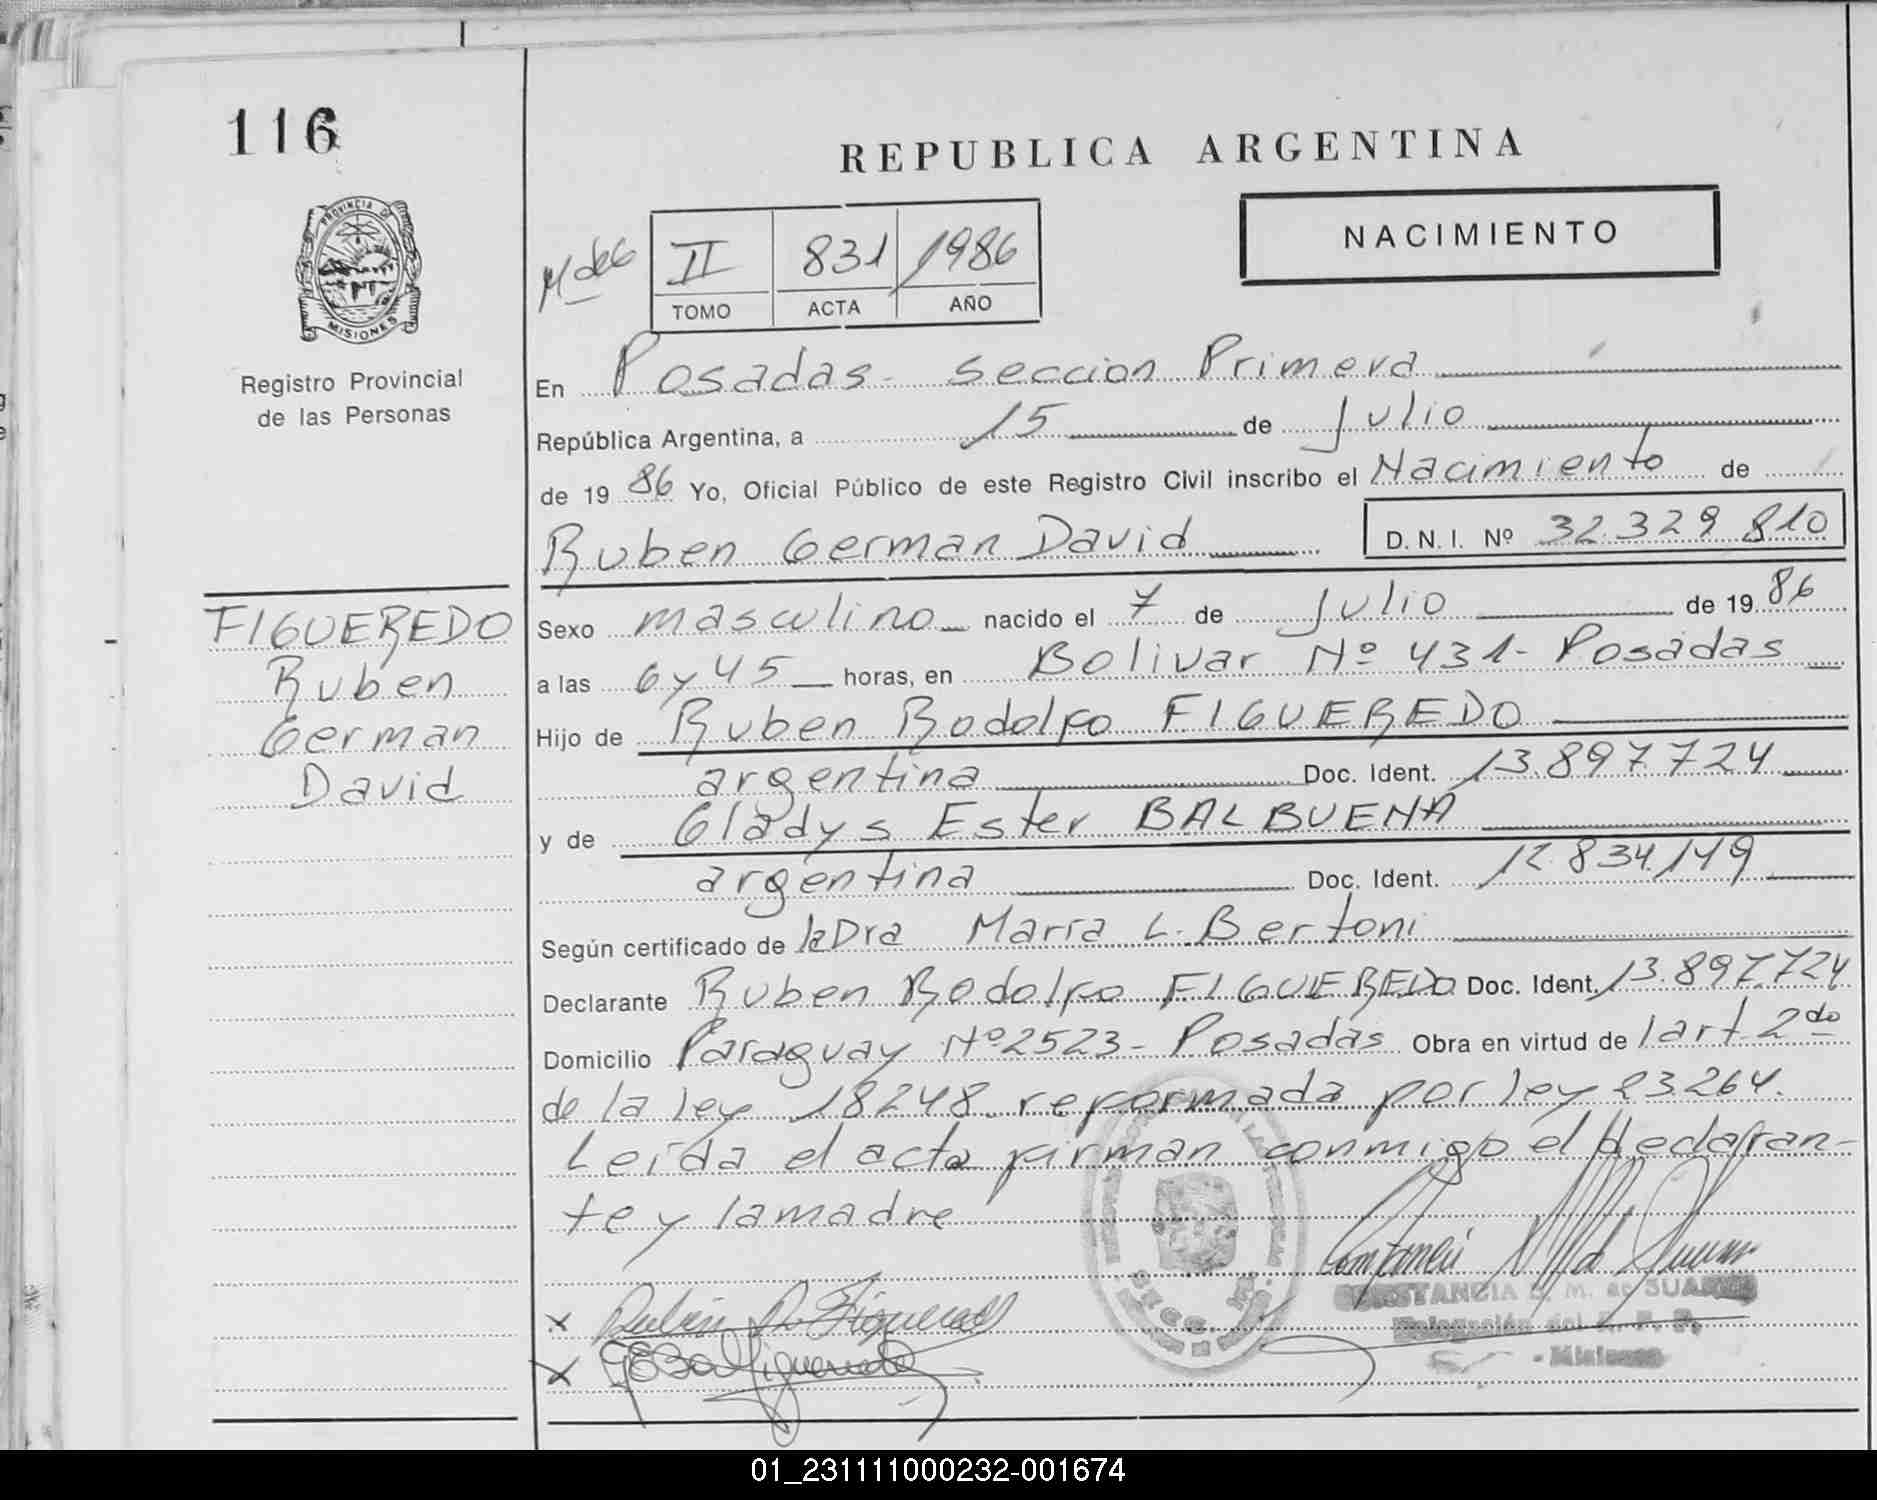 116
PROVINCIA DE
MISIONES
Registro Provincial
de las Personas
REPUBLICA ARGENTINA
NACIMIENTO
II 831 1986
TOMO ACTA AÑO
En Posadas - Seccion Primera
República Argentina, a 15 de Julio
de 19 86 Yo, Oficial Público de este Registro Civil inscribo el Nacimiento de
Ruben German David D.N.I. Nº 32.329.810
FIGUEREDO
Ruben
German
David
Sexo masculino nacido el 7 de Julio de 19 86
a las 6 y 45 horas, en Bolivar Nº 431 - Posadas
Hijo de Ruben Rodolfo FIGUEREDO
argentina Doc. Ident. 13.897.724
y de Gladys Ester BALBUENA
argentina Doc. Ident. 12.834.149
Según certificado de la Dra Maria L. Bertoni
Declarante Ruben Rodolfo FIGUEREDO Doc. Ident. 13.897.724
Domicilio Paraguay Nº 2523 - Posadas Obra en virtud de l art. 2do
de la ley 18248 reformada por ley 23.264.
Leida el acta firman conmigo el declaran-
te y la madre
CONSTANCIA M. de SUAREZ
- Misiones
01_231111000232-001674